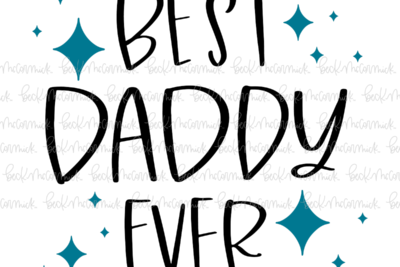 BEST
DADDY
EVER